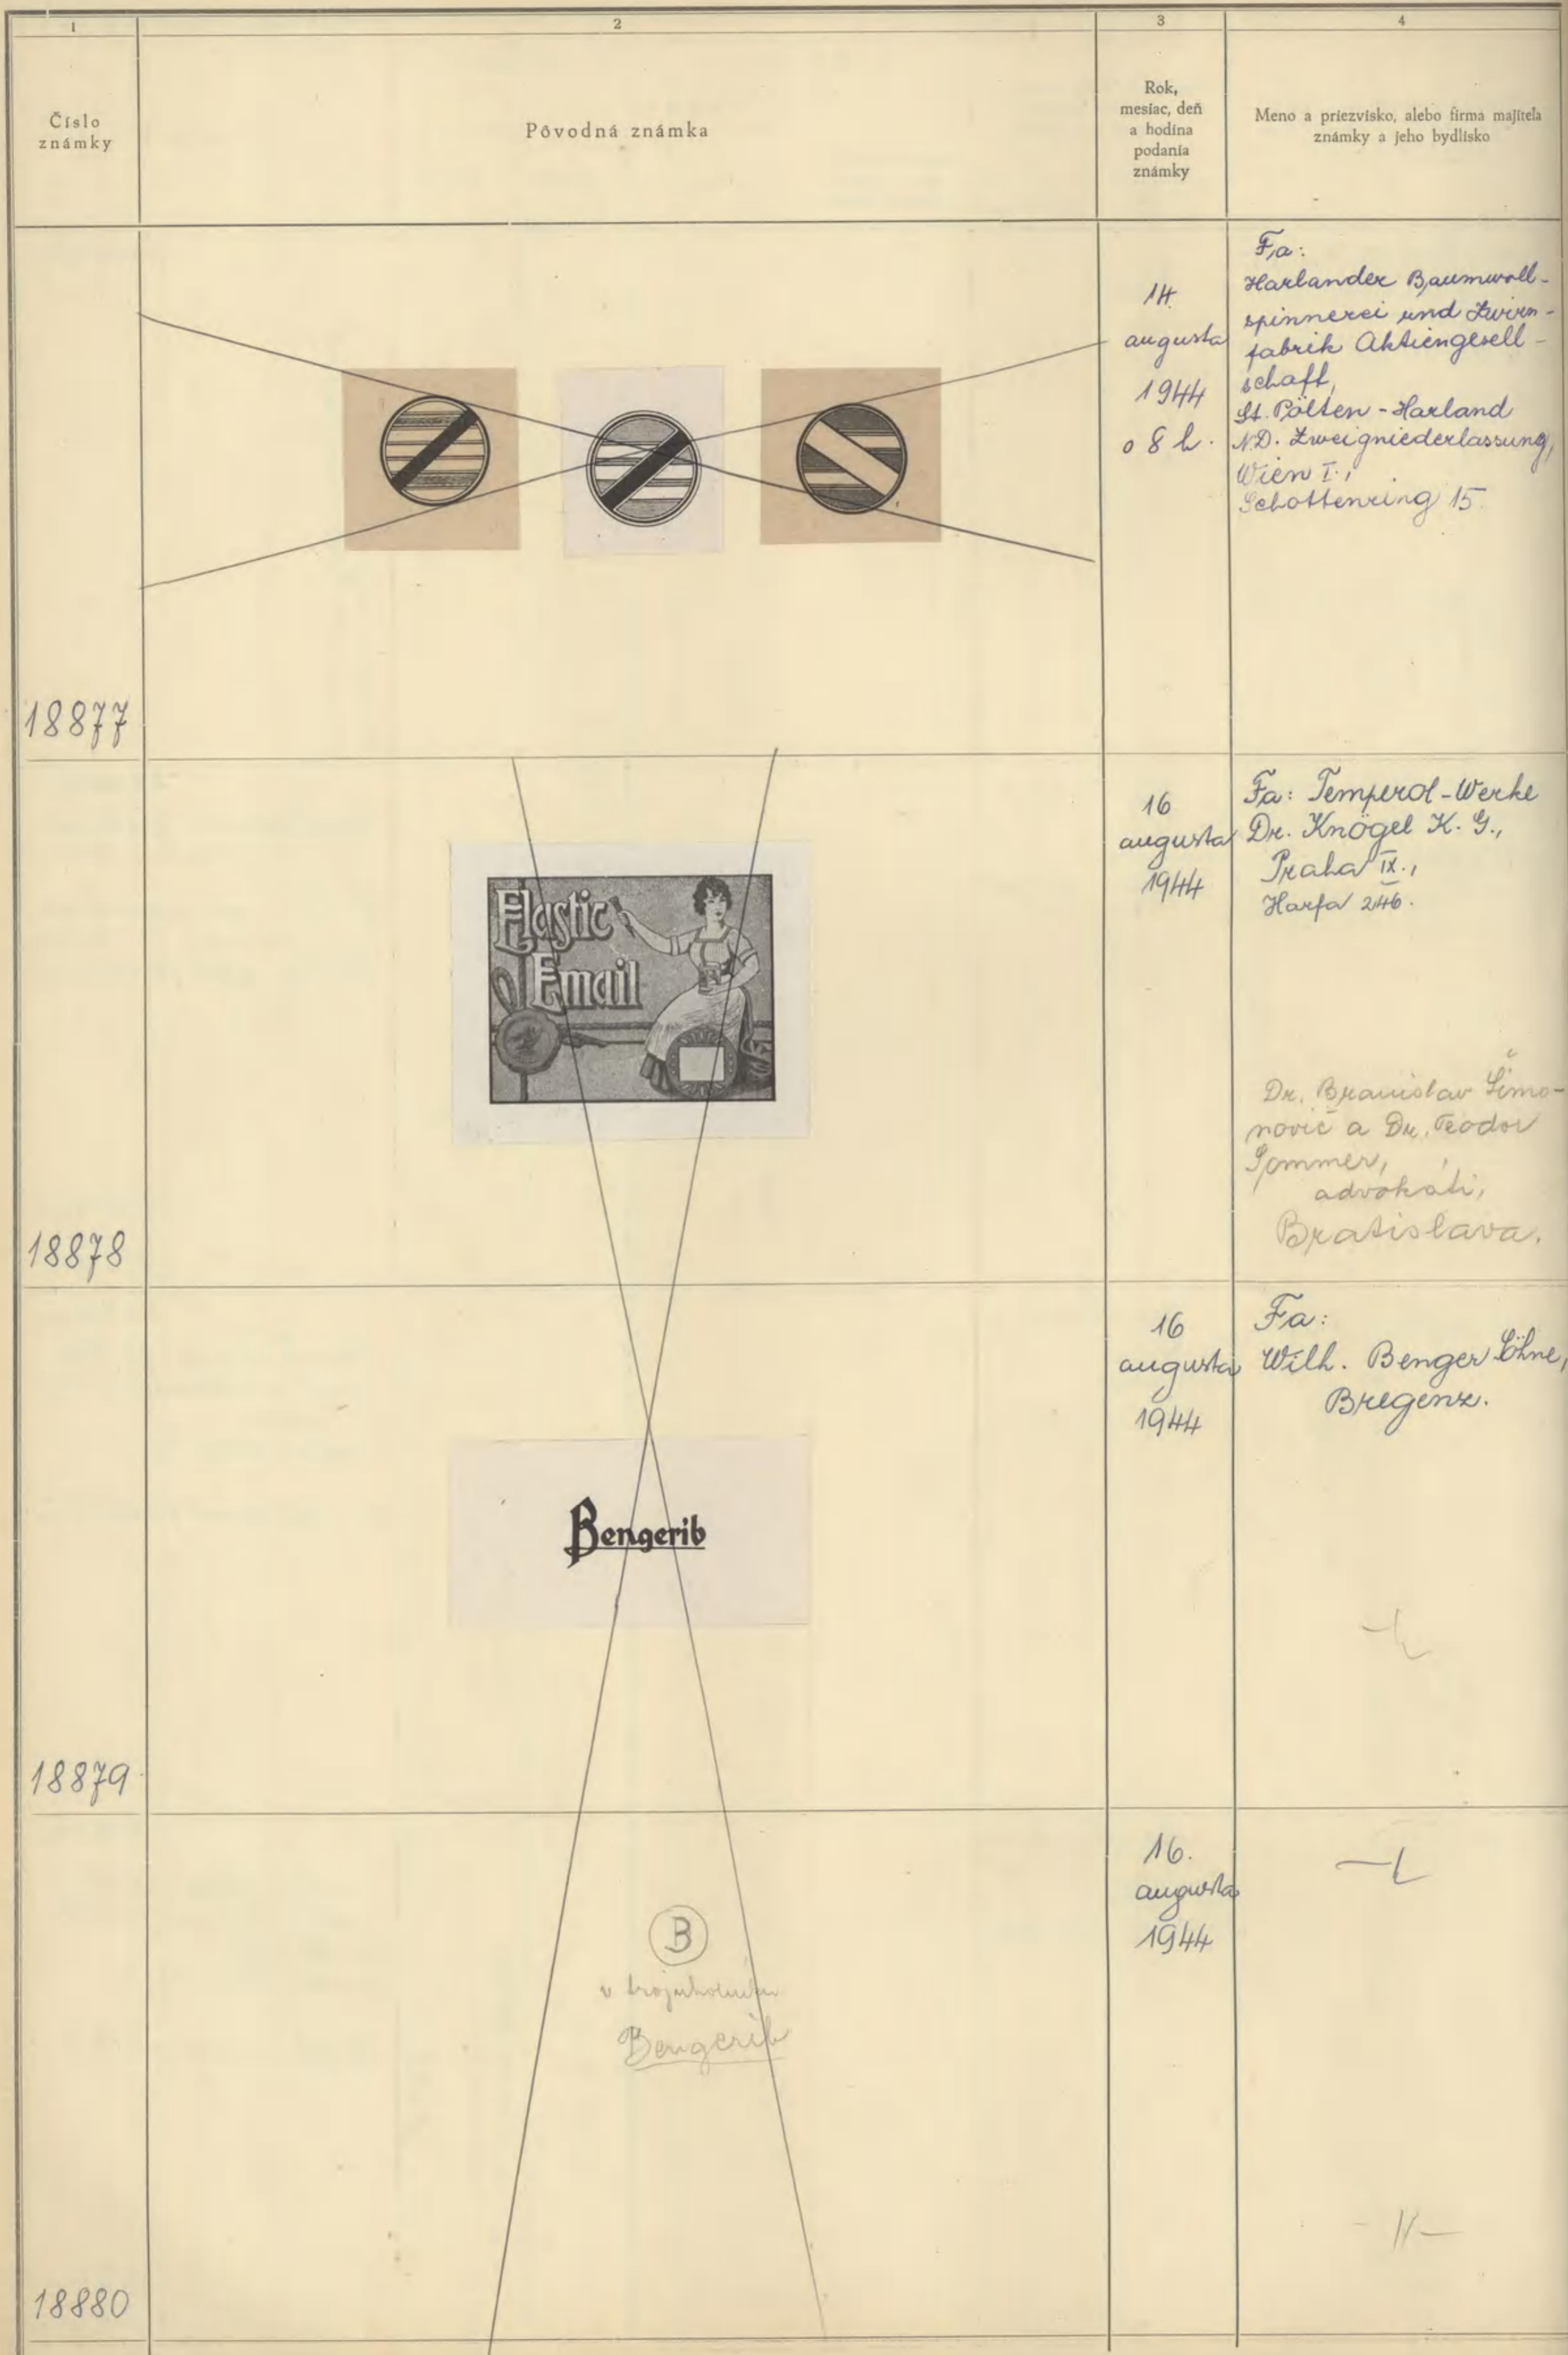 1
2
3
4
Číslo
známky
Pôvodná známka
Rok,
mesiac, deň
a hodina
podania
známky
Meno a priezvisko, alebo firma majiteľa
známky a jeho bydlisko
18877
14.
augusta
1944
o 8 h.
Fa:
Harlander Baumwoll-
spinnerei und Zwirn-
fabrik Aktiengesell-
schaft,
St. Pölten - Harland
N.D. Zweigniederlassung,
Wien I.,
Schottenring 15.
18878
Elastic
Email
16
augusta
1944
Fa: Temperol-Werke
Dr. Knögel K. G.,
Praha IX.,
Harfa 246.
Dr. Branislav Šimo-
novič a Dr. Teodor
Sommer,
advokáti,
Bratislava.
18879
Bengerib
16
augusta
1944
Fa:
Wilh. Benger Söhne,
Bregenz.
18880
B
v trojuholníku
Bengerib
16.
augusta
1944
- II -